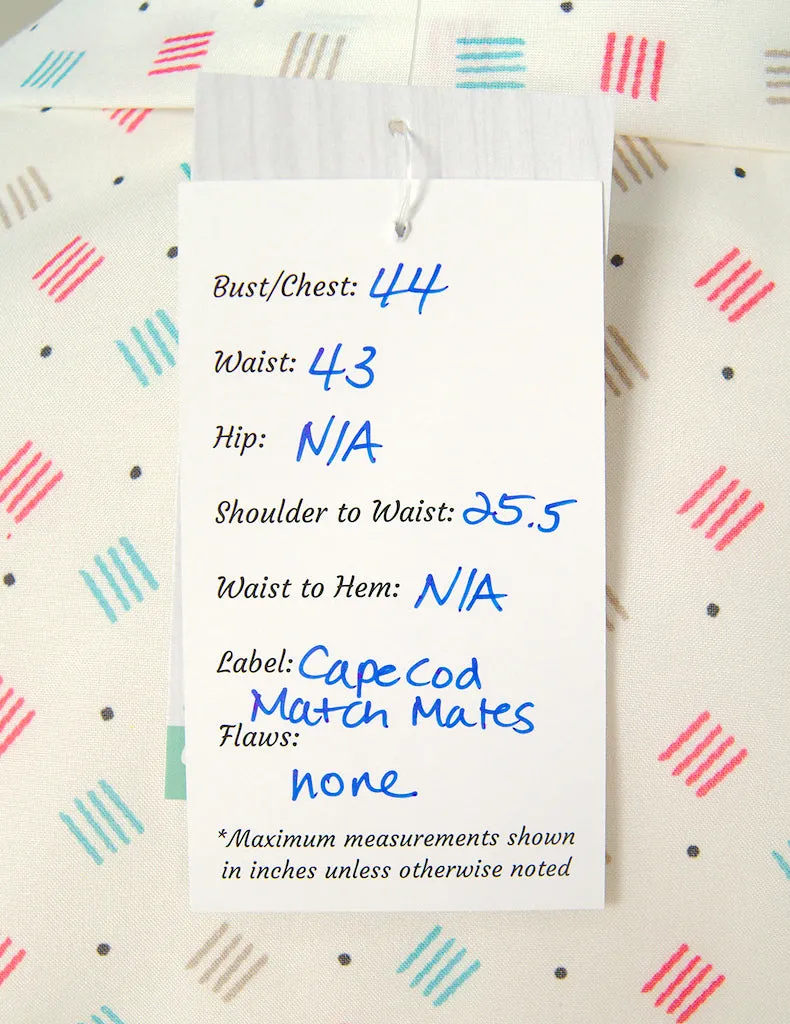 Bust/Chest: 44
Waist: 43
Hip: N/A
Shoulder to Waist: 25.5
Waist to Hem: N/A
Label: Cape Cod
Match Mates
Flaws:
none
*Maximum measurements shown
in inches unless otherwise noted